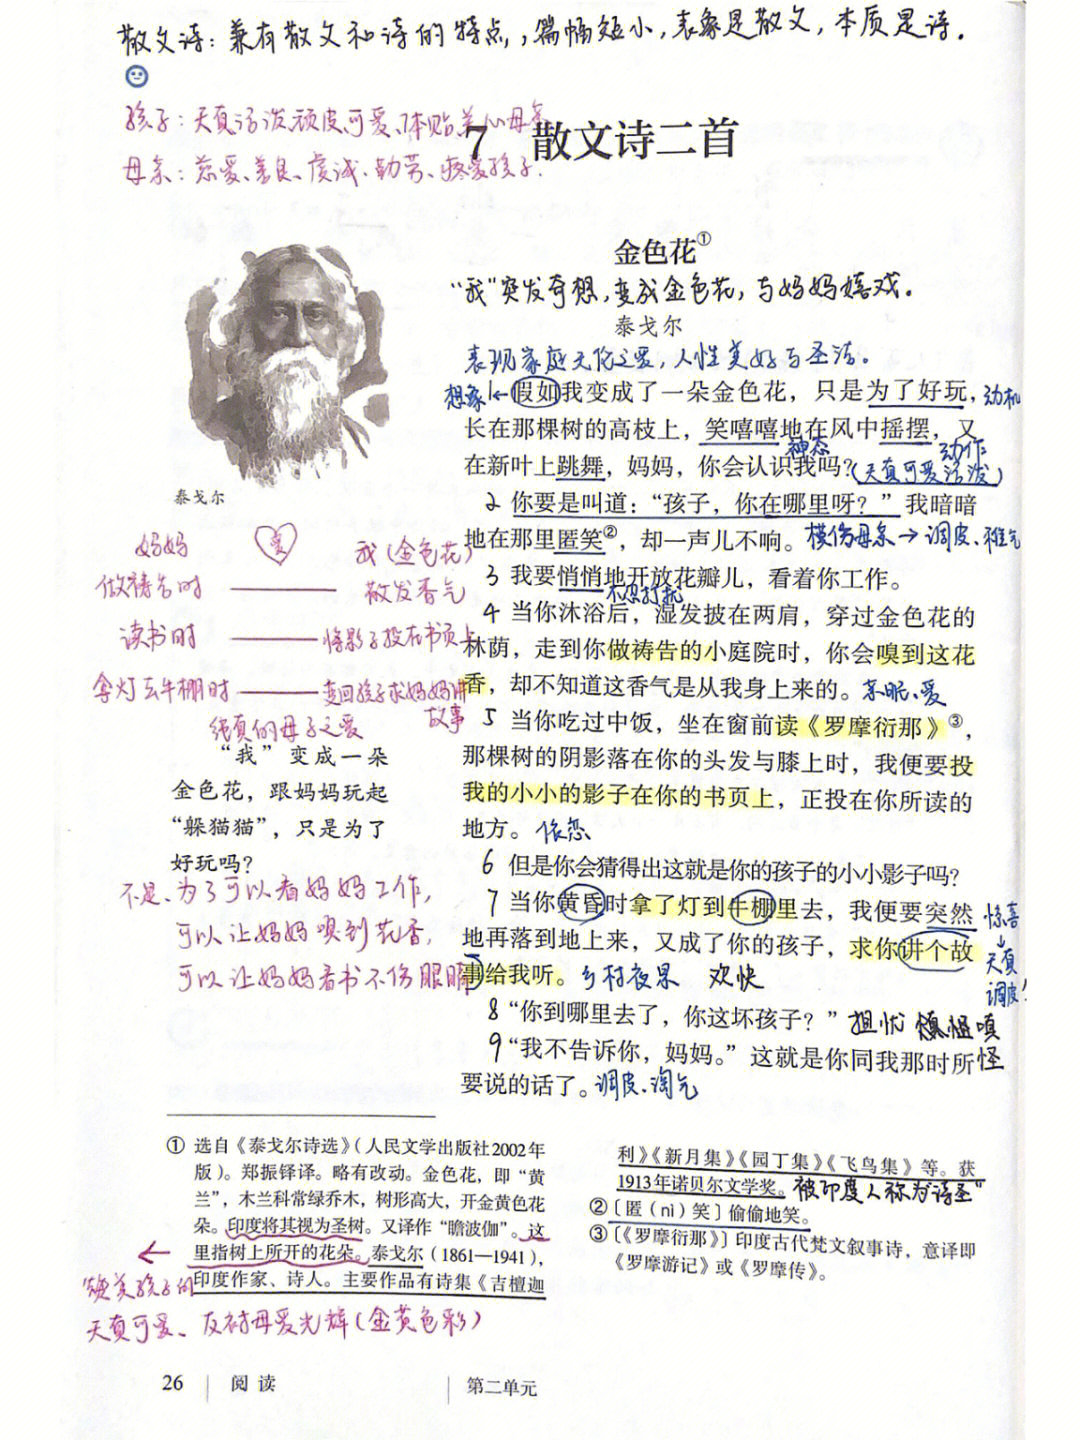 散文诗：兼有散文和诗的特点，篇幅短小，表象是散文，本质是诗．
孩子：天真活泼、顽皮可爱、体贴关心母亲
母亲：慈爱、善良、虔诚、勤劳、疼爱孩子．
7 散文诗二首
金色花①
“我”突发奇想，变成金色花，与妈妈嬉戏．
泰戈尔
表现家庭无伦之爱，人性美好与圣洁。
想象←
1 假如我变成了一朵金色花，只是为了好玩，
动机
长在那棵树的高枝上，笑嘻嘻地在风中摇摆，又
神态 动作
在新叶上跳舞，妈妈，你会认识我吗？
(天真可爱活泼)
2 你要是叫道：“孩子，你在哪里呀？”我暗暗
地在那里匿笑②，却一声儿不响。
模仿母亲→调皮、稚气
3 我要悄悄地开放花瓣儿，看着你工作。
不想打扰
4 当你沐浴后，湿发披在两肩，穿过金色花的
林荫，走到你做祷告的小庭院时，你会嗅到这花
香，却不知道这香气是从我身上来的。
亲昵、爱
5 当你吃过中饭，坐在窗前读《罗摩衍那》③，
那棵树的阴影落在你的头发与膝上时，我便要投
我的小小的影子在你的书页上，正投在你所读的
地方。
依恋
6 但是你会猜得出这就是你的孩子的小小影子吗？
7 当你黄昏时拿了灯到牛棚里去，我便要突然
地再落到地上来，又成了你的孩子，求你讲个故
事给我听。
乡村夜景 欢快
惊喜
↓
天真
调皮！
8 “你到哪里去了，你这坏孩子？”
担忧 嗔
怪
9 “我不告诉你，妈妈。”这就是你同我那时所
要说的话了。
调皮、淘气
泰戈尔
妈妈 爱 我(金色花)
做祷告时 —— 散发香气
读书时 —— 将影子投在书页上
拿灯去牛棚时 —— 变回孩子求妈妈讲
故事
纯真的母子之爱
“我”变成一朵
金色花，跟妈妈玩起
“躲猫猫”，只是为了
好玩吗？
不是、为了可以看妈妈工作，
可以让妈妈嗅到花香，
可以让妈妈看书不伤眼睛
① 选自《泰戈尔诗选》（人民文学出版社2002年
版）。郑振铎译。略有改动。金色花，即“黄
兰”，木兰科常绿乔木，树形高大，开金黄色花
朵。印度将其视为圣树。又译作“瞻波伽”。这
里指树上所开的花朵。泰戈尔（1861—1941），
印度作家、诗人。主要作品有诗集《吉檀迦
利》《新月集》《园丁集》《飞鸟集》等。获
1913年诺贝尔文学奖。
被印度人称为“诗圣”
②〔匿（nì）笑〕偷偷地笑。
③〔《罗摩衍那》〕印度古代梵文叙事诗，意译即
《罗摩游记》或《罗摩传》。
←
赞美孩子的
天真可爱、反衬母爱光辉(金黄色彩)
26 阅读
第二单元